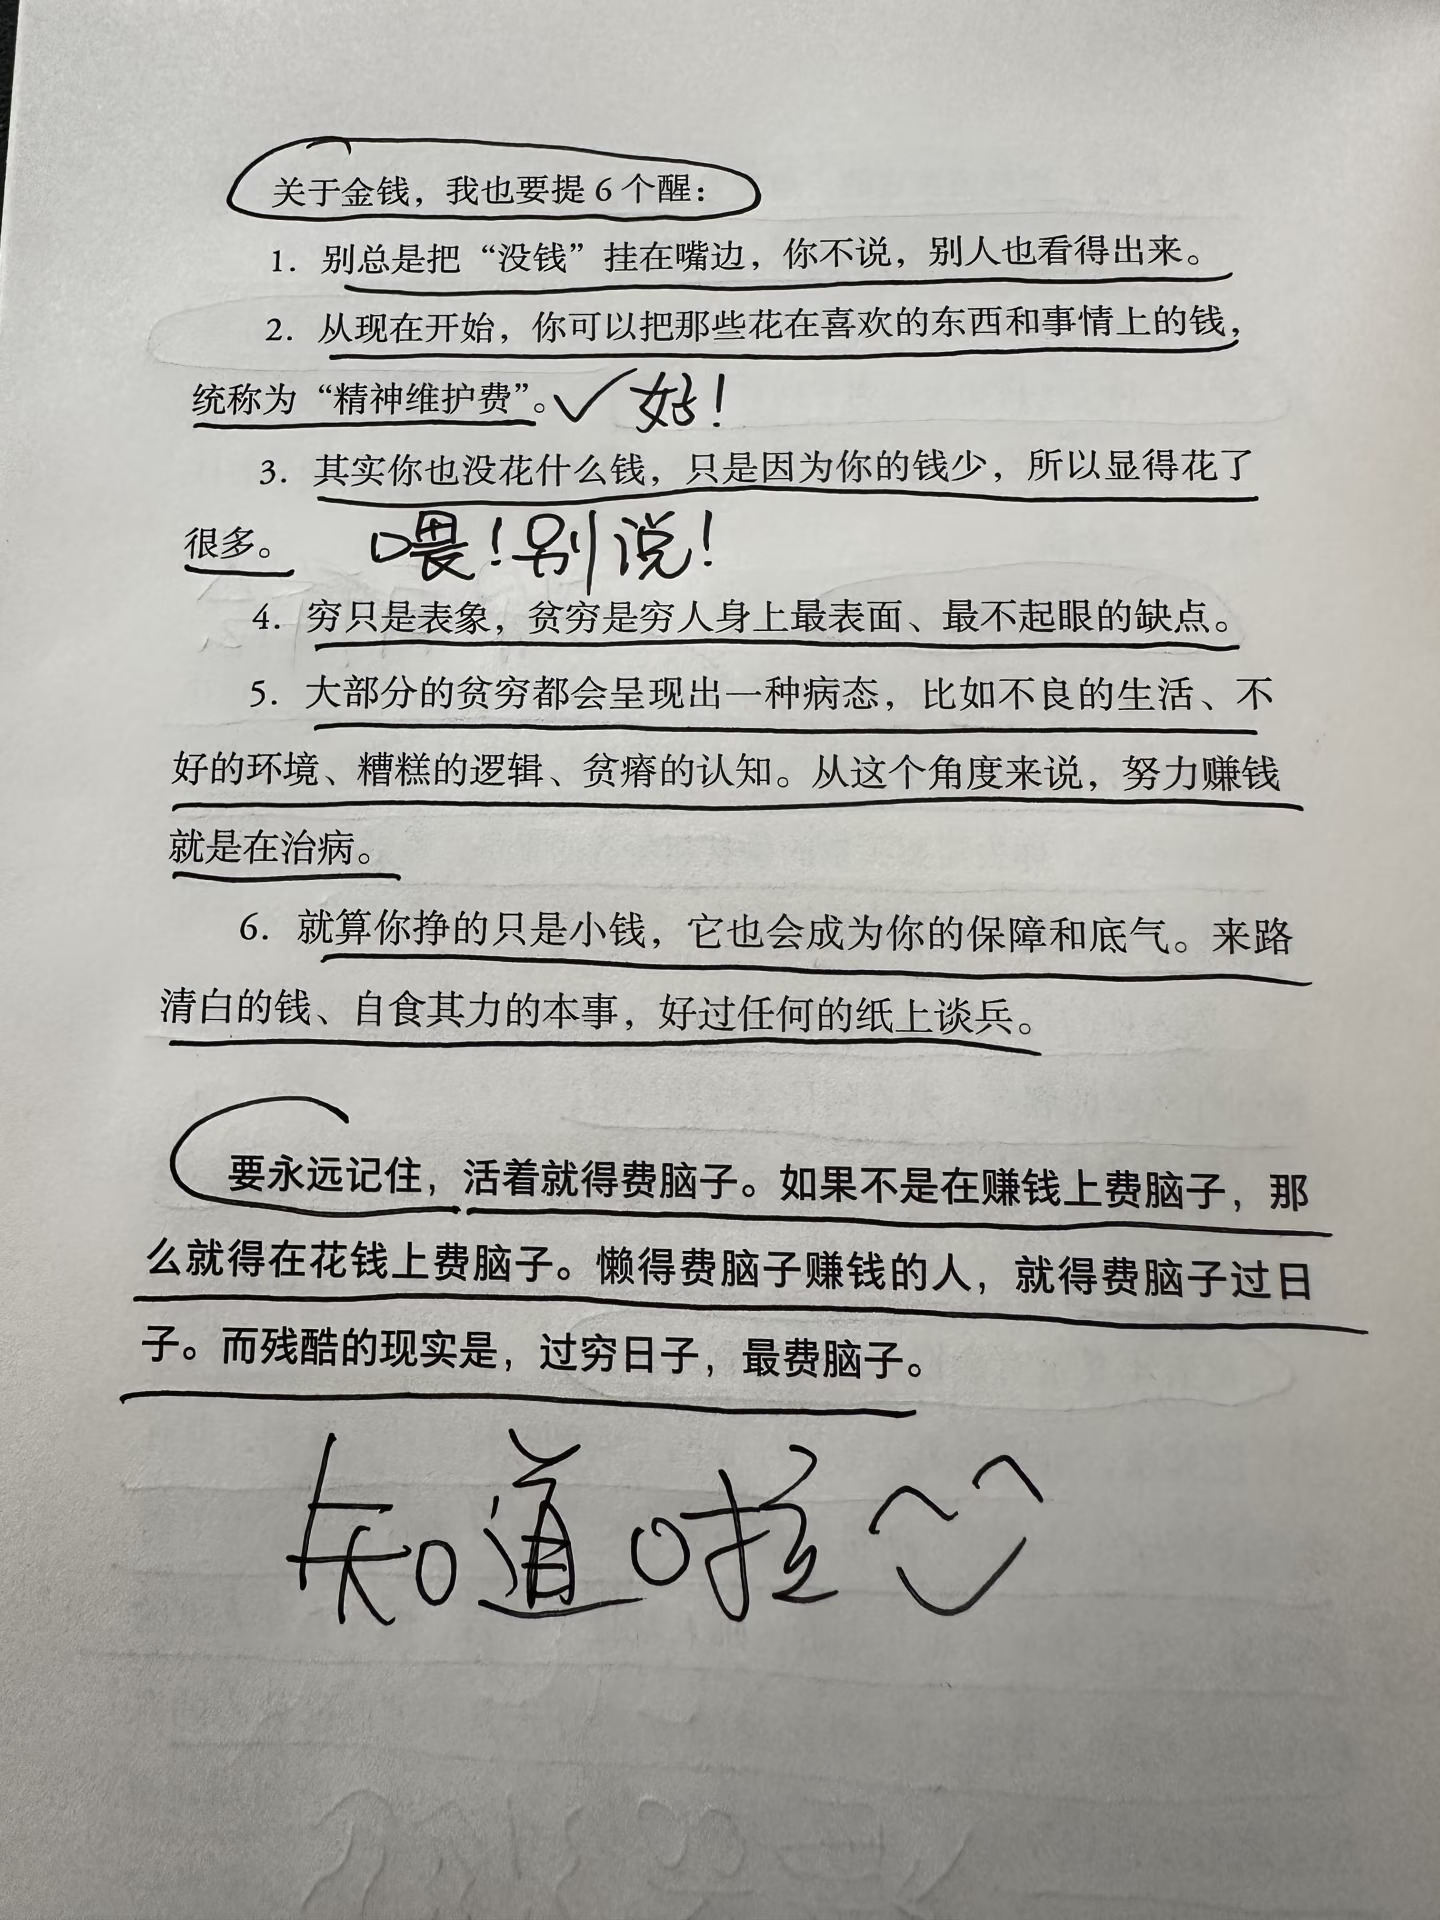 关于金钱，我也要提 6 个醒：
1. 别总是把“没钱”挂在嘴边，你不说，别人也看得出来。
2. 从现在开始，你可以把那些花在喜欢的东西和事情上的钱，
统称为“精神维护费”。✓好！
3. 其实你也没花什么钱，只是因为你的钱少，所以显得花了
很多。 喂！别说！
4. 穷只是表象，贫穷是穷人身上最表面、最不起眼的缺点。
5. 大部分的贫穷都会呈现出一种病态，比如不良的生活、不
好的环境、糟糕的逻辑、贫瘠的认知。从这个角度来说，努力赚钱
就是在治病。
6. 就算你挣的只是小钱，它也会成为你的保障和底气。来路
清白的钱、自食其力的本事，好过任何的纸上谈兵。
要永远记住，活着就得费脑子。如果不是在赚钱上费脑子，那
么就得在花钱上费脑子。懒得费脑子赚钱的人，就得费脑子过日
子。而残酷的现实是，过穷日子，最费脑子。
知道啦